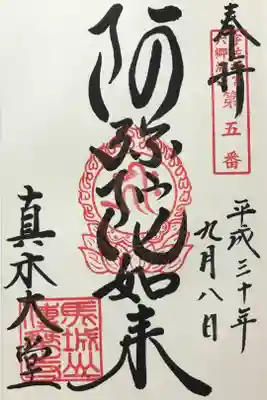 奉拝
第五番
平成三十年
九月八日
阿弥陀如来
真木大堂